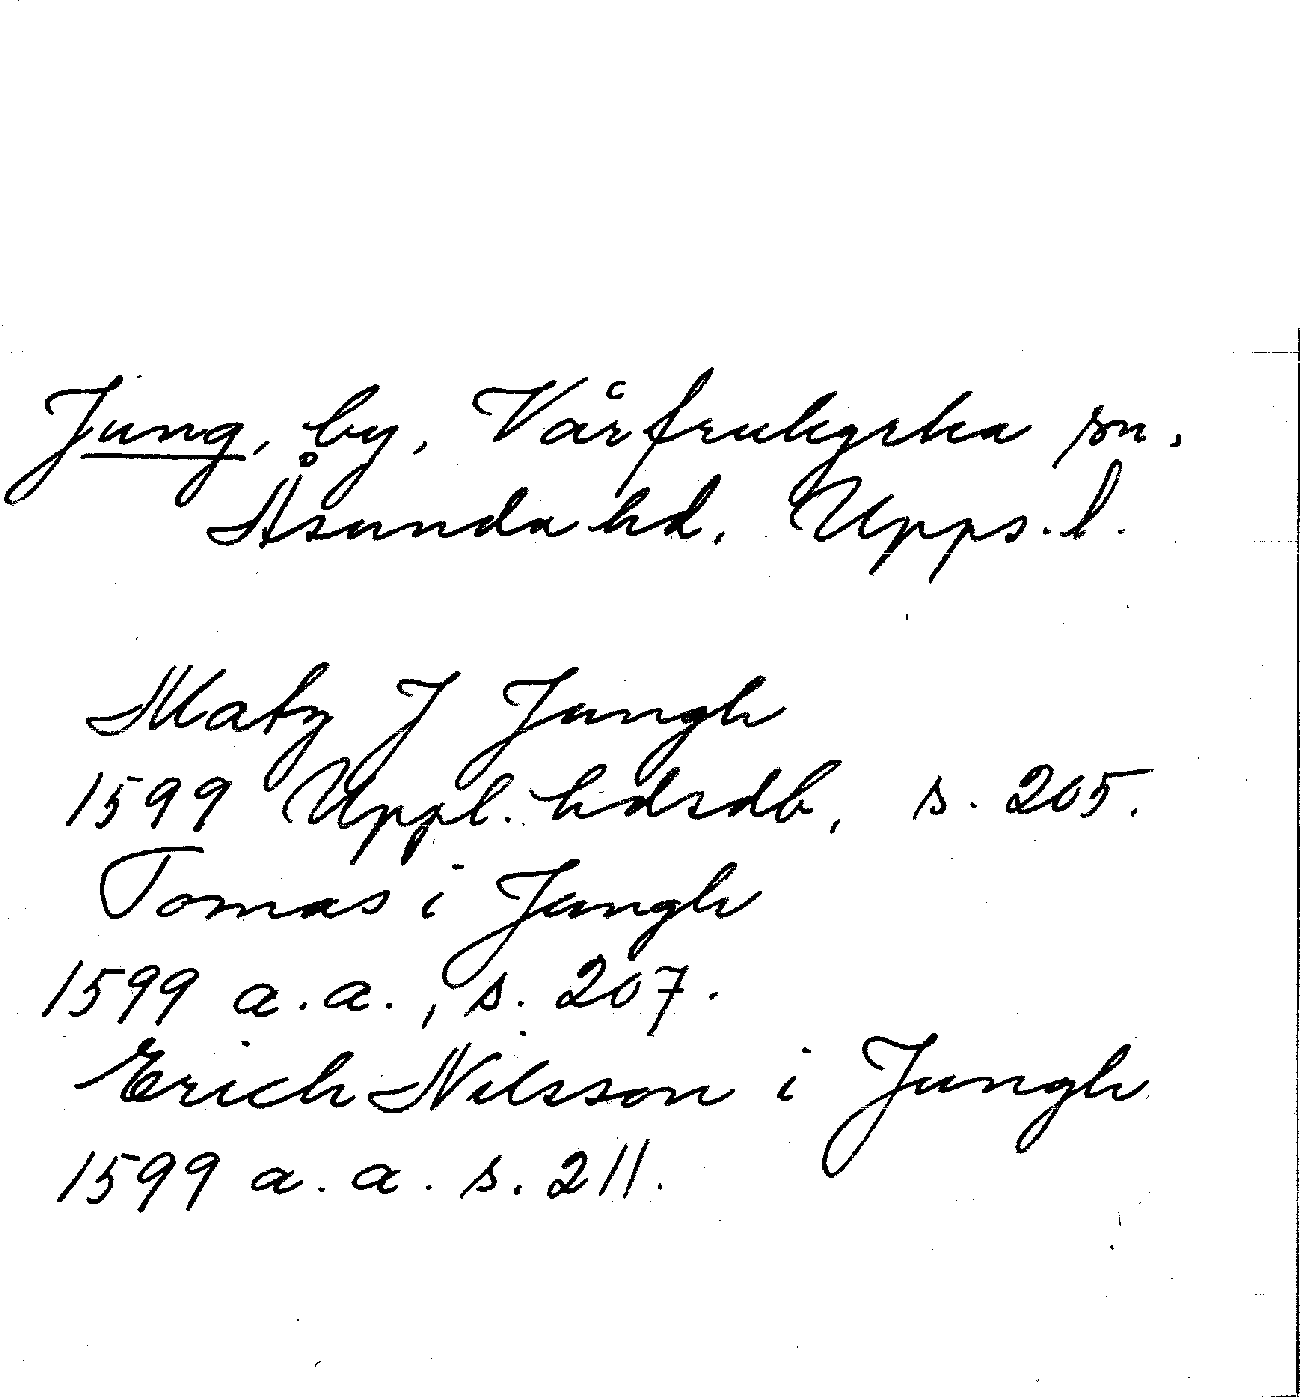 Jung, by, Vårfrukyrka sn,
Åsunda hd, Upps. l.
Matz J Jungh
1599 Uppl. hdsdb, s. 205.
Tomas i Jungh
1599 a.a., s. 207.
Erich Nilsson i Jungh
1599 a.a. s. 211.